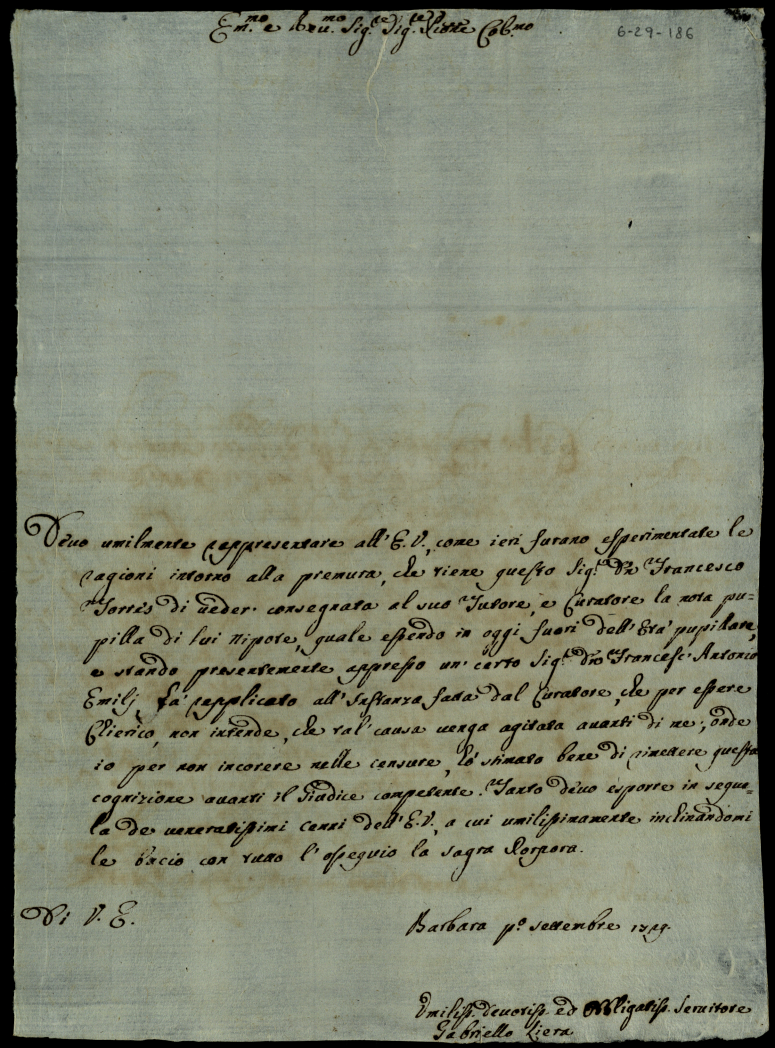 Em.mo e Reu.mo Sig.re Sig.re P.rone Col.mo
6-29-186
Deuo umilmente rappresentare all' E.V., come ieri furano esperimentate le
ragioni intorno alla premura, che tiene questo Sig.r Dn Francesco
Torres di ueder consegnata al suo Tutore, e Curatore la nota pu=
pilla di lui nipote, quale essendo in oggi fuori dell' Età pupillare,
e stando presentemente appresso un' certo Sig.r Dn Francesc' Antonio
Emilj, fà replicato all' Instanza fatta dal Curatore, che per essere
Clierico, non intende, che tal' causa uenga agitata auanti di me; onde
io per non incorere nelle censure, hò stimato bene di rimettere questa
cognizione auanti il Giudice competente. Tanto deuo esporre in seque=
la de ueneratissimi cenni dell' E.V., a cui umilissimamente inclinandomi
le bacio con tutto l'ossequio la sagra Porpora.
Di V. E.
Barbara p.o settembre 1729.
Umiliss. deuotiss. ed Obbligatiss. Seruitore
Gabriello Liera